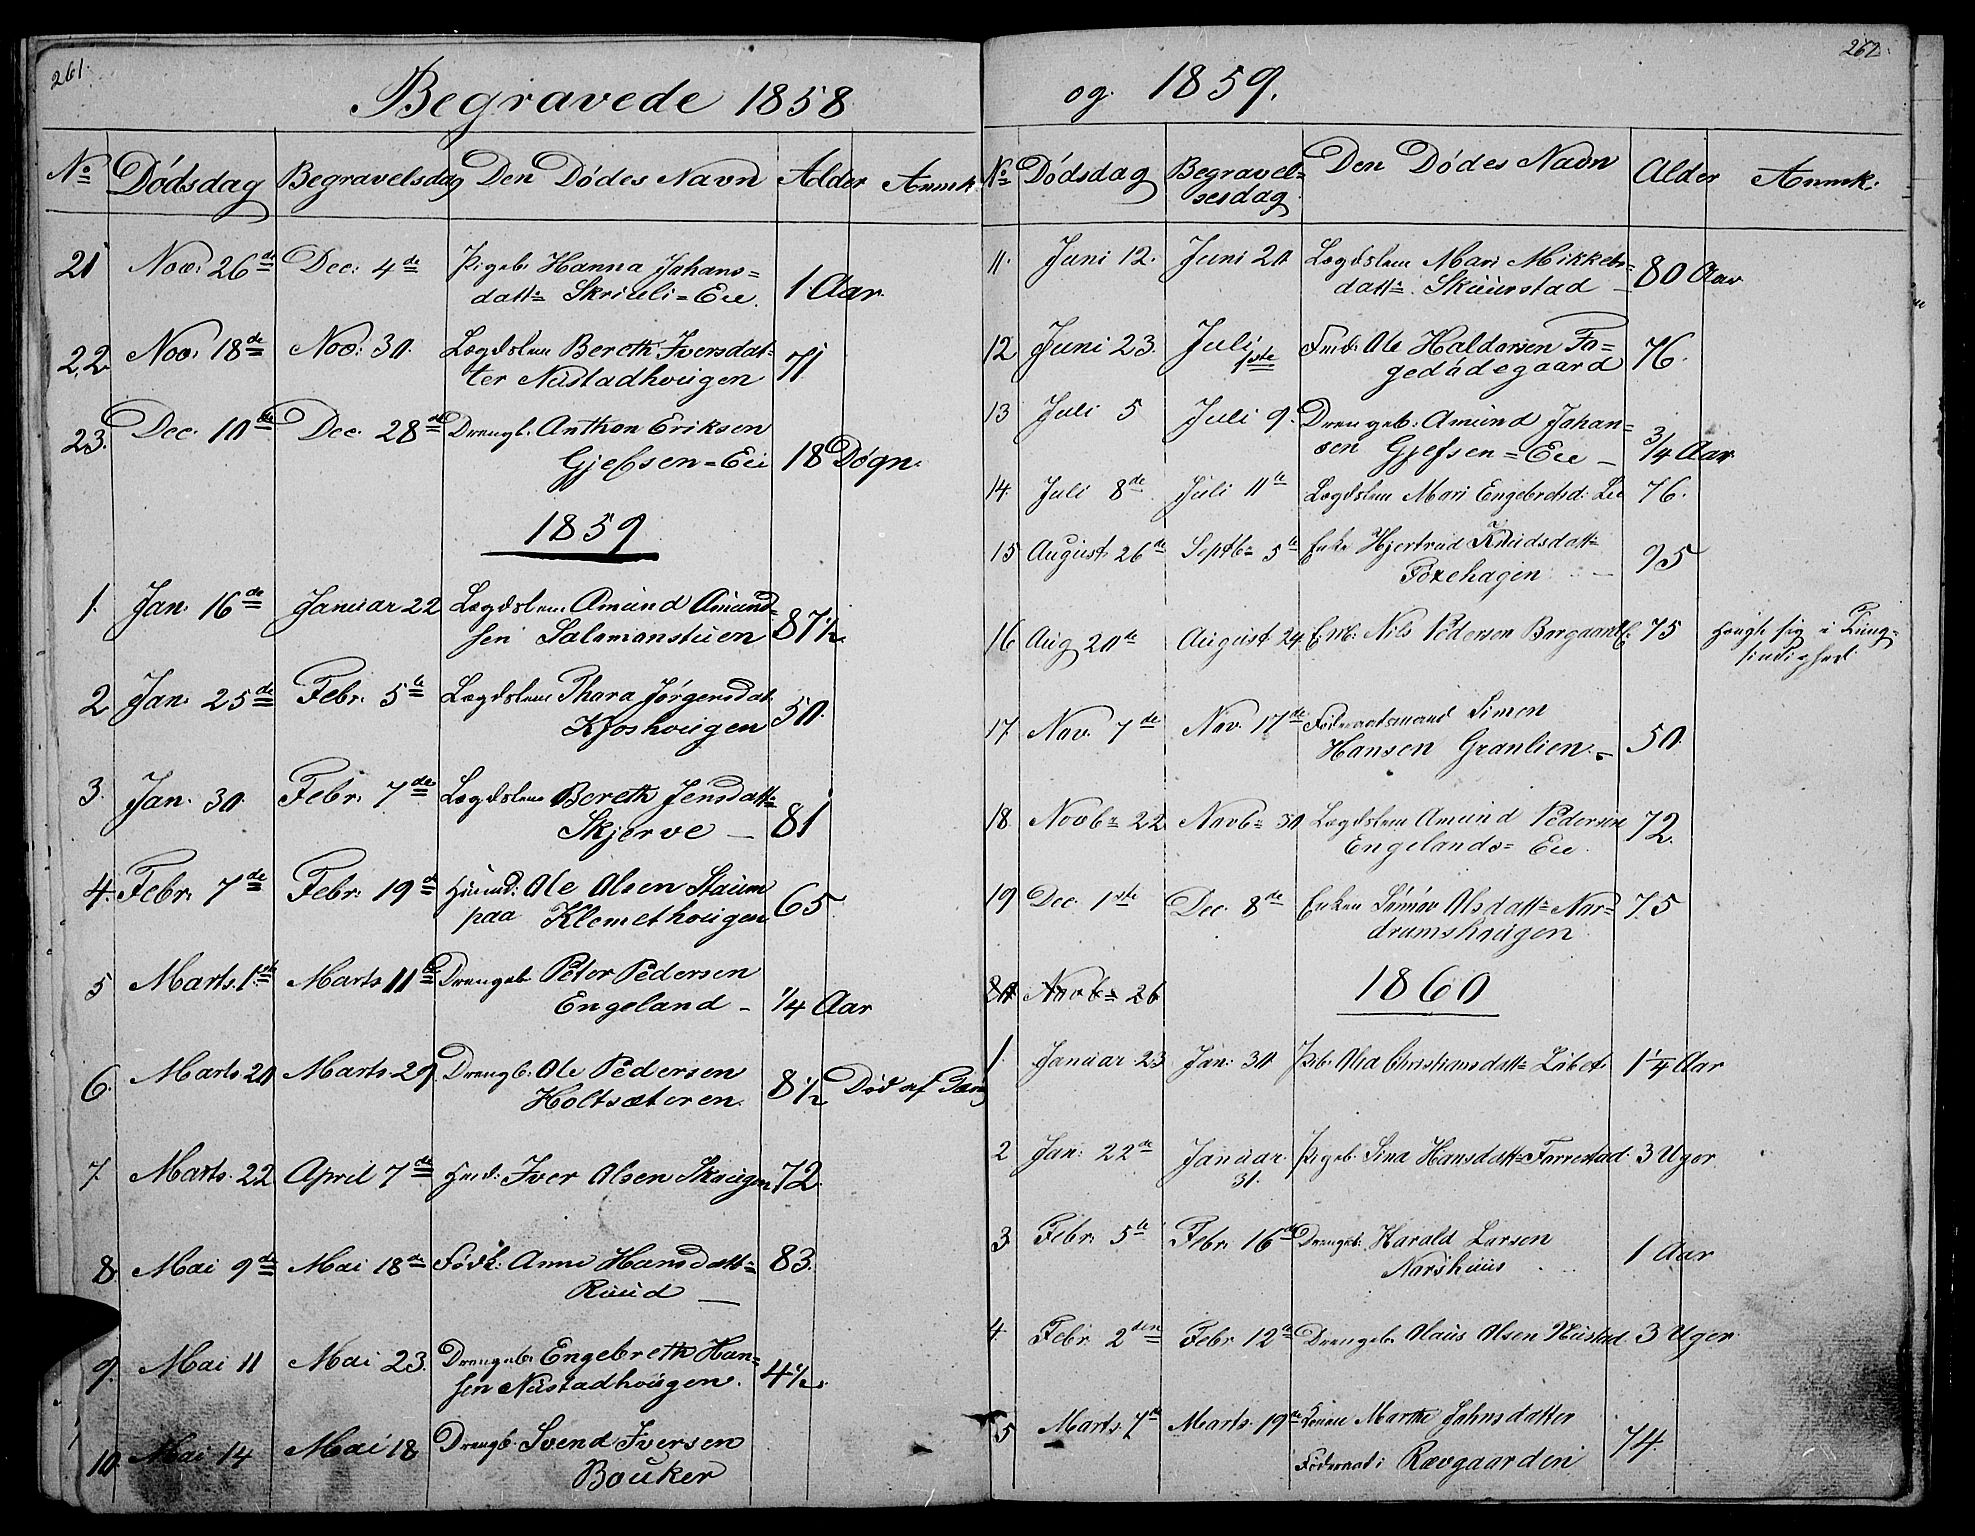 261.
Begravede 1858
No Dødsdag Begravelsdag Den Dødes Navn Alder Anmk.
21 Nov. 26de Dec. 4de Pigeb. Hanna Johans=
datt. Skriuli=Eie. 1 Aar.
22 Nov. 18de Nov. 30. Lægdslem Bereth Iversdat=
ter Nustadhougen 71
23. Dec. 10de Dec. 28de Drengb. Anthon Eriksen
Gjefsen=Eie 18 Døgn.
1859
1. Jan. 16de Januar 22 Lægdslem Amund Amund=
sen Salomonstuen 87½
2 Jan. 25de Febr. 5te Lægdslem Thora Jørgensdat.
Kjoshougen 50.
3. Jan. 30. Febr. 7de Lægdslem Bereth Jensdatt.
Skjerve – 81
4. Febr. 7de Febr. 19de Huusmd. Ole Olsen Staum
paa Klemethougen 65
5 Marts. 1ste Marts 11te Drengeb. Peter Pedersen
Engeland – ¼ Aar
6. Marts. 20 Marts. 29 Drengb. Ole Pedersen
Holtsæteren. 8½ Død af Tæring
7. Marts. 22 April 7de Hmd. Iver Olsen Skougen 72.
8. Mai 9de Mai 18de Fødk. Anne Hansdatt.
Ruud – 83.
9. Mai 11 Mai 23. Drengeb. Engebreth Han=
sen Nustadhougen. 4½
10. Mai 14 Mai 18 Drengb. Svend Iversen
Bouker
262.
og 1859.
No Dødsdag Begravel=
sesdag Den Dødes Navn Alder Anmk.
11. Juni 12. Juni 20 Lægdslem Mari Mikkels=
datt. Skuurstad – 80 Aar
12 Juni 23. Juli 1ste Emd. Ole Haldorsen Fo=
gedødegaard 76.
13 Juli 5 Juli 9. Drengeb. Amund Johan=
sen Gjefsen=Eie – ¾ Aar
14. Juli 8de Juli 11te Lægdslem Mari Engebretsd. Lie 76.
15 August 26de Septb. 5te Enke Hjertrud Knudsdatt.
Foxehagen – 95
16 Aug 20de August 24. Emd. Nils Pedersen Borgaard 75 Hengte sig i Tung=
sindighed
17. Nov. 7de Nov. 17de Føderaadsmand Simen
Hansen Granlien. – 50.
18. Novb. 22 Novb. 30 Lægdslem Amund Pedersen
Engelands=Eie. 72.
19 Dec. 1ste Dec. 8de Enken Siniøv Olsdatt. Nor=
drumshougen 75
20 Novb. 26
1860
1. Januar 23 Jan. 30 Pib. Olea Christiansdatt. 1¼ Aar
2 Jan. 22de Januar
31. Pigeb. Sina Hansdatt. Farrestad. 3 Uger.
3 Febr. 5te Febr. 16de Drengeb. Harald Larsen
Norshuus 1 Aar
4. Febr. 2den Febr. 12te Drengeb. Olaus Olsen Nustad. 3 Uger.
5 Marts 7de Marts. 19de Konen Marthe Johnsdatter
Føderaad i Rævgaarden 74.